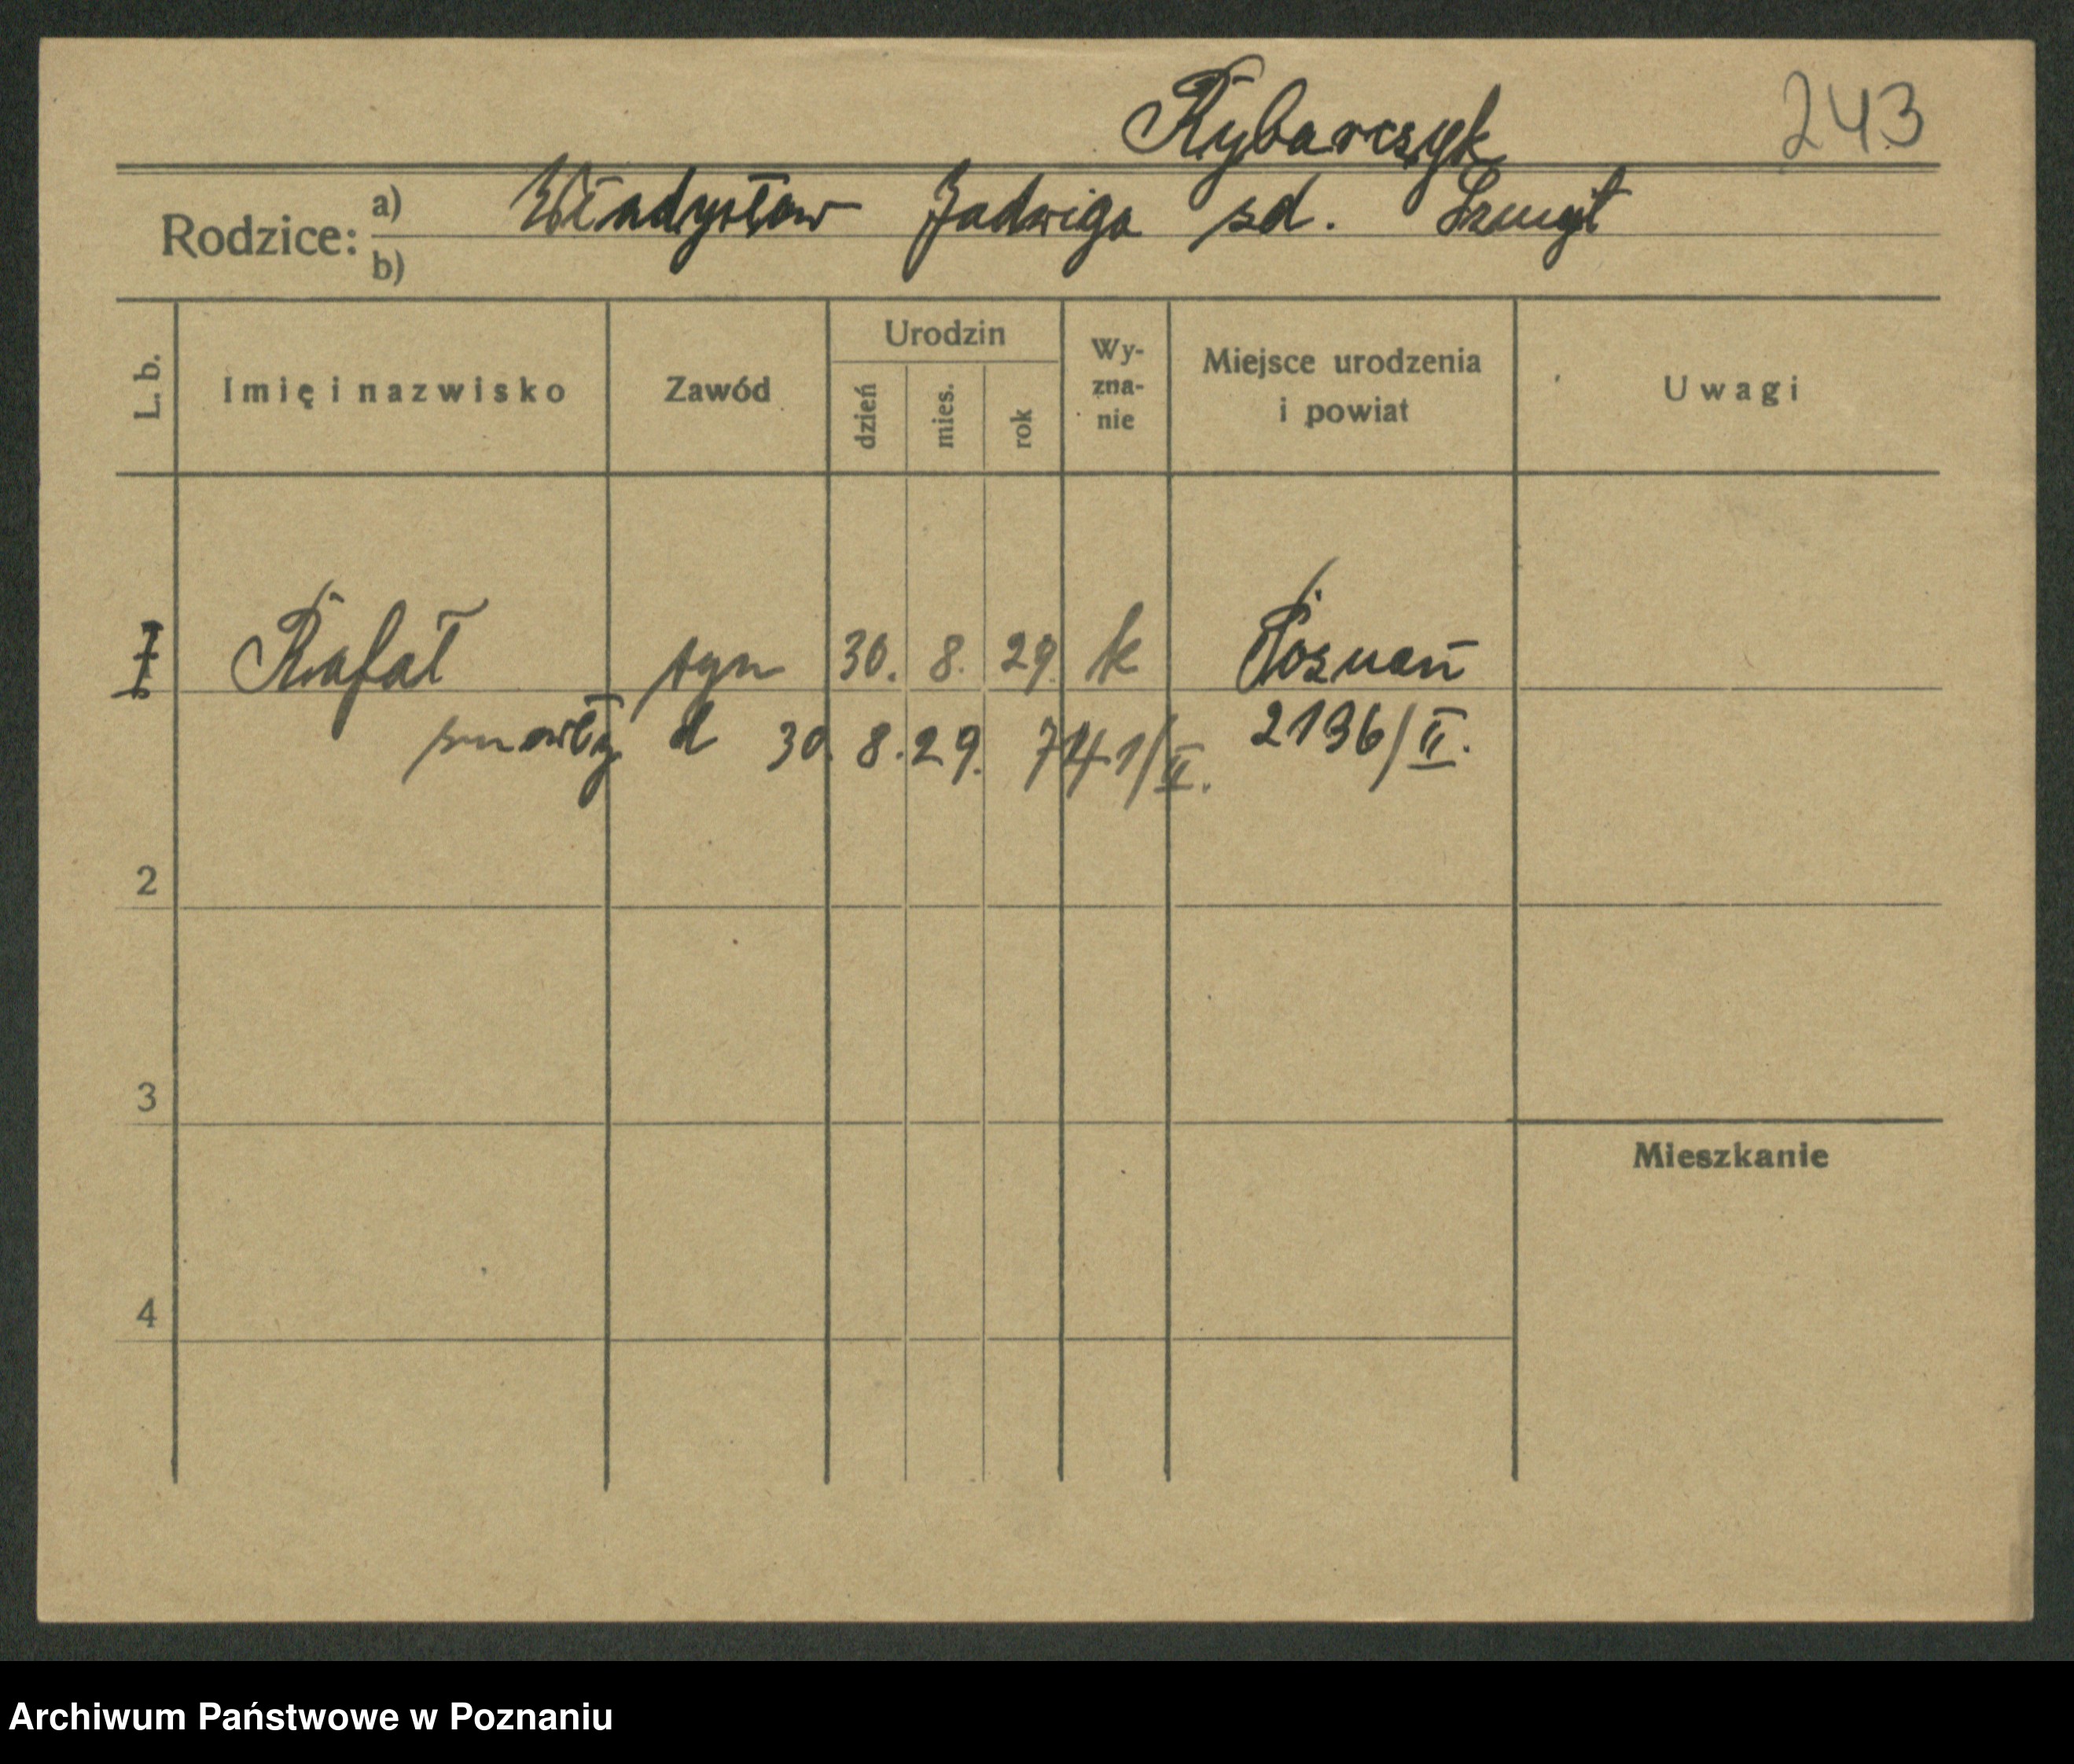 Rybarczyk 243
Rodzice: a) Władysław Jadwiga zd. Szmyt
b)
L. b. Imię i nazwisko Zawód Urodzin dzień mies. rok Wy-zna-nie Miejsce urodzenia i powiat Uwagi
1 Rafał syn 30. 8. 29. k Poznań
zmarły d 30. 8. 29. 741/II. 2136/II.
2
3
Mieszkanie
4
Archiwum Państwowe w Poznaniu